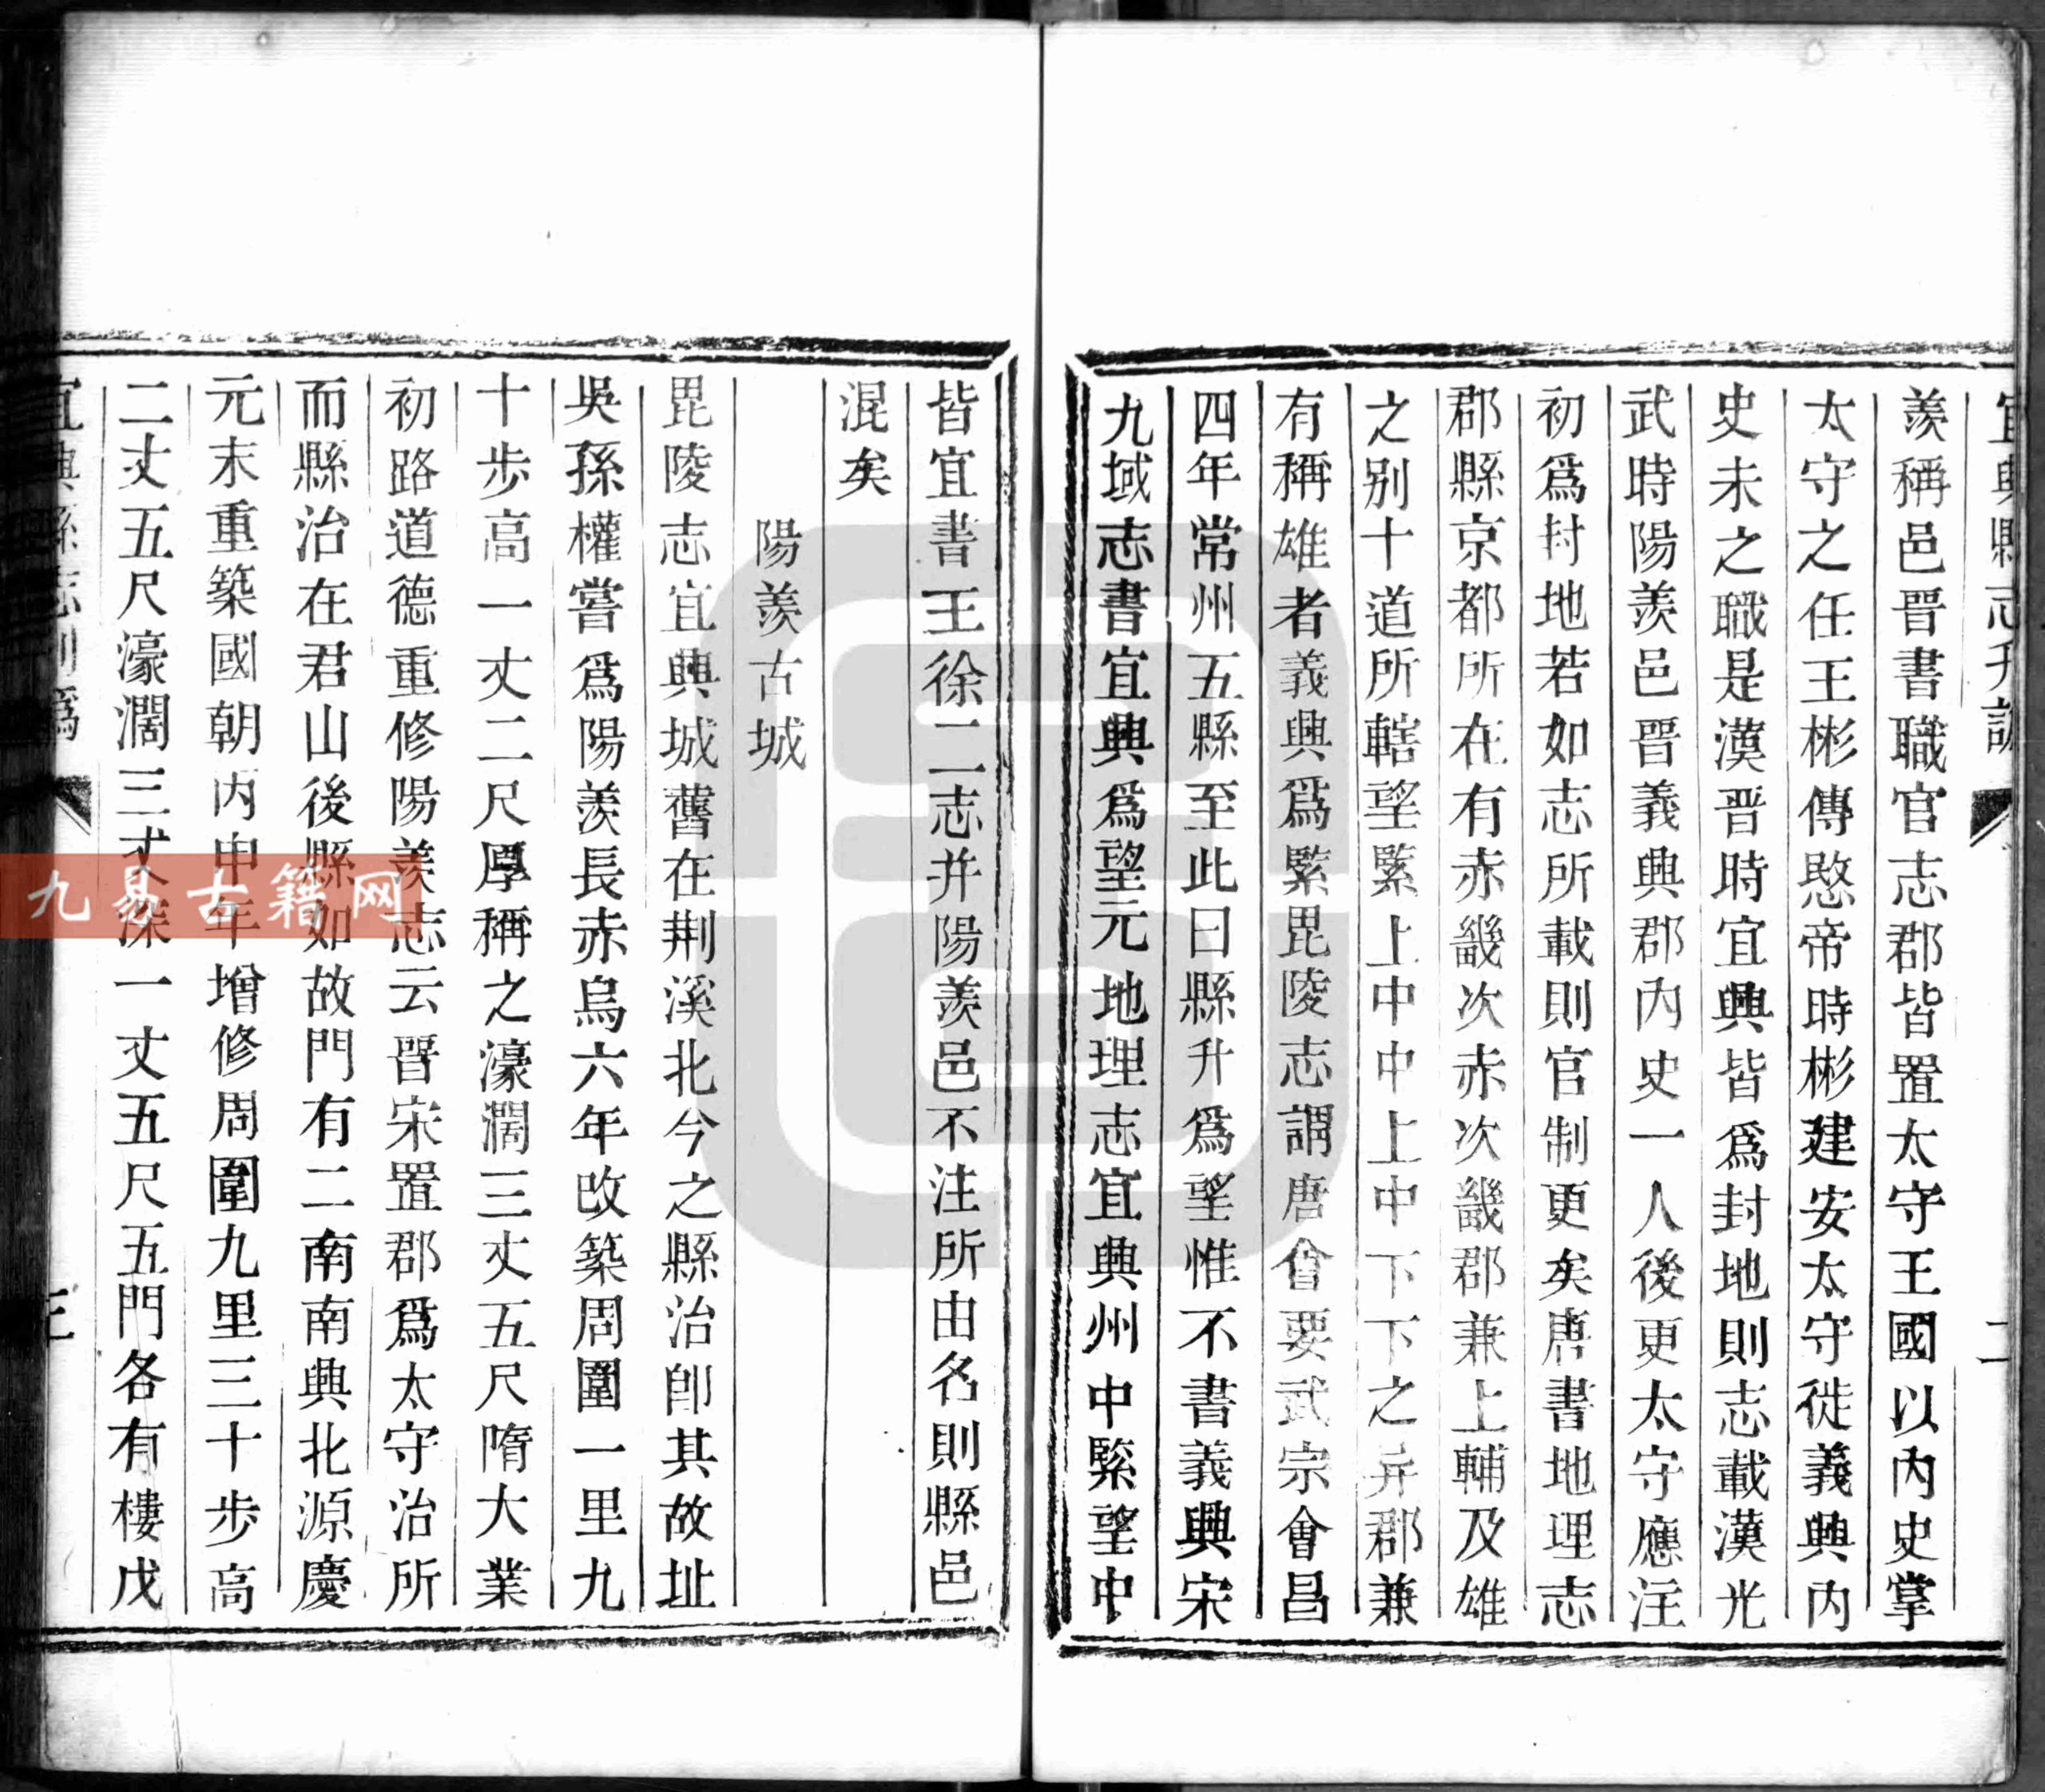 羨稱邑晉書職官志郡皆置太守王國以內史掌
太守之任王彬傳愍帝時彬建安太守徙義興內
史未之職是漢晉時宜興皆爲封地則志載漢光
武時陽羨邑晉義興郡內史一人後更太守應注
初爲封地若如志所載則官制更矣唐書地理志
郡縣京都所在有赤畿次赤次畿郡兼上輔及雄
之別十道所轄望緊上中中上中下下之并郡兼
有稱雄者義興爲緊毘陵志謂唐會要武宗會昌
四年常州五縣至此曰縣升爲望惟不書義興宋
九域志書宜興爲望元地理志宜興州中緊望中
皆宜書王徐二志并陽羨邑不注所由名則縣邑
混矣
陽羨古城
毘陵志宜興城舊在荆溪北今之縣治卽其故址
吳孫權嘗爲陽羨長赤烏六年改築周圍一里九
十步高一丈二尺厚稱之濠濶三丈五尺隋大業
初路道德重修陽羨志云晉宋置郡爲太守治所
而縣治在君山後縣如故門有二南南興北源慶
元末重築國朝丙申年增修周圍九里三十步高
二丈五尺濠濶三丈深一丈五尺五門各有樓戊
三
宜興縣志刊
二
九易古籍网